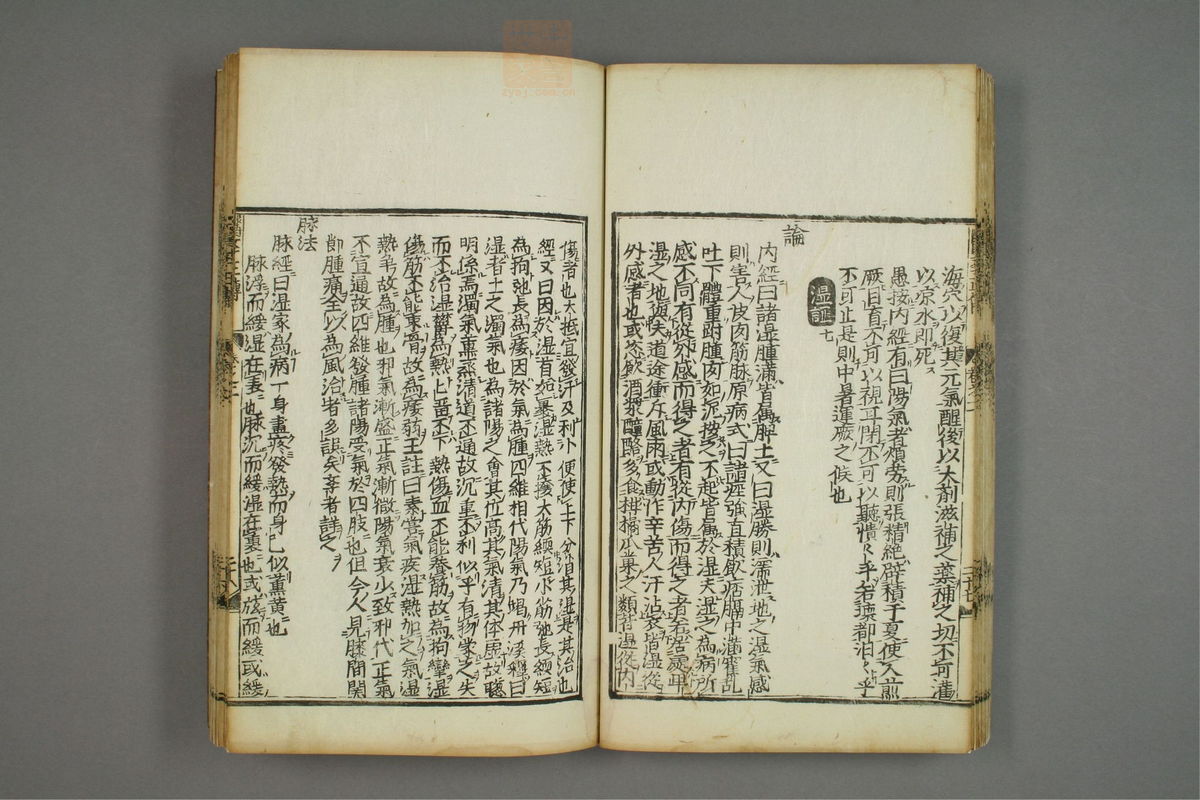 海穴以復其元氣醒後以大剤滋補之藥補之切不可灌
以凉水即死
愚按内經有曰陽氣者煩劳則張精絶辟積于夏使人煎
厥目盲不可以視耳閉不可以聽憒〻乎若壊都汨〻乎
不可止是則中暑運厥之候也
湿証 七
論
内經曰諸湿腫滿皆属脾土又曰湿勝則濡泄地之湿氣感
則害人皮肉筋脉原病式曰諸痙強直積飲痞膈中滿霍乱
吐下體重胕腫肉如泥按之不起皆属於湿夫湿之為病所
感不同有從外感而得之者有從内伤而得之者若居處卑
湿之地與夫道途衝斥風雨或動作辛苦之人汗沾衣皆湿從
外感者也或恣飲酒漿醴酪多食柑橘瓜果之類皆湿從内
傷者也大抵宜發汗及利小便使上下分消其湿是其治也
經又曰因於湿首如裹湿熱不攘大筋緛短小筋弛長緛短
為拘弛長為痿因於氣為腫四維相代陽氣乃竭丹溪釋曰
湿者土之濁氣也為諸陽之會其位高其氣清其体虚故聰
明係焉濁氣熏蒸清道不通故沉重不利似乎有物蒙之失
而不治湿欝為熱上畄不下熱傷血不能養筋故為拘攣湿
傷筋不能束骨故為痿弱王註曰素嘗氣疾湿熱加之氣湿
熱爭故為腫也邪氣漸盛正氣漸微陽氣衰少致邪代正氣
不宣通故四維發腫諸陽受氣於四肢也但今人見膝間關
節腫痛全以為風治者多誤矣幸者詳之
脉法
脉經曰湿家為病一身盡疼發熱而身色似薫黄也
脉浮而緩湿在表也脉沉而緩湿在裏也或弦而緩或緩